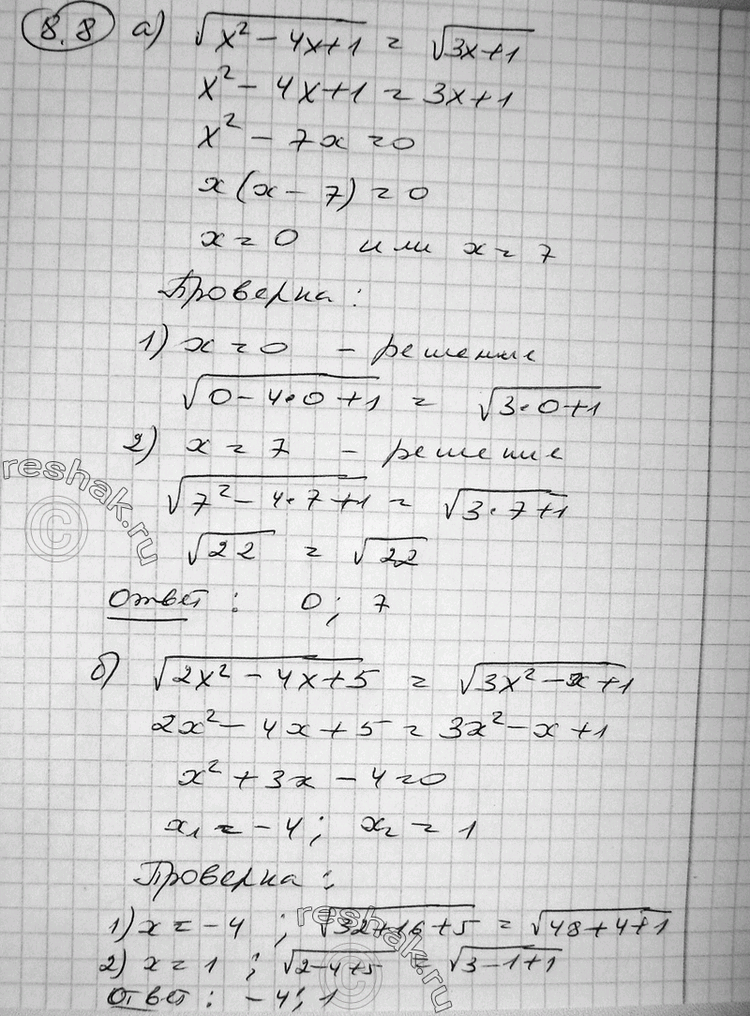 8.8 а) √(x² - 4x+1) = √(3x+1)
x² - 4x+1 = 3x+1
x² - 7x = 0
x(x - 7) = 0
x = 0 или x = 7
Проверка:
1) x = 0 - решение
√(0 - 4·0 + 1) = √(3·0+1)
2) x = 7 - решение
√(7² - 4·7+1) = √(3·7+1)
√22 = √22
Ответ: 0; 7
б) √(2x² - 4x+5) = √(3x² - x+1)
2x² - 4x+5 = 3x² - x+1
x² + 3x - 4 = 0
x₁ = -4; x₂ = 1
Проверка:
1) x = -4; √(32+16+5) = √(48+4+1)
2) x = 1; √(2-4+5) = √(3-1+1)
Ответ: -4; 1
reshak.ru
©
reshak.ru
©